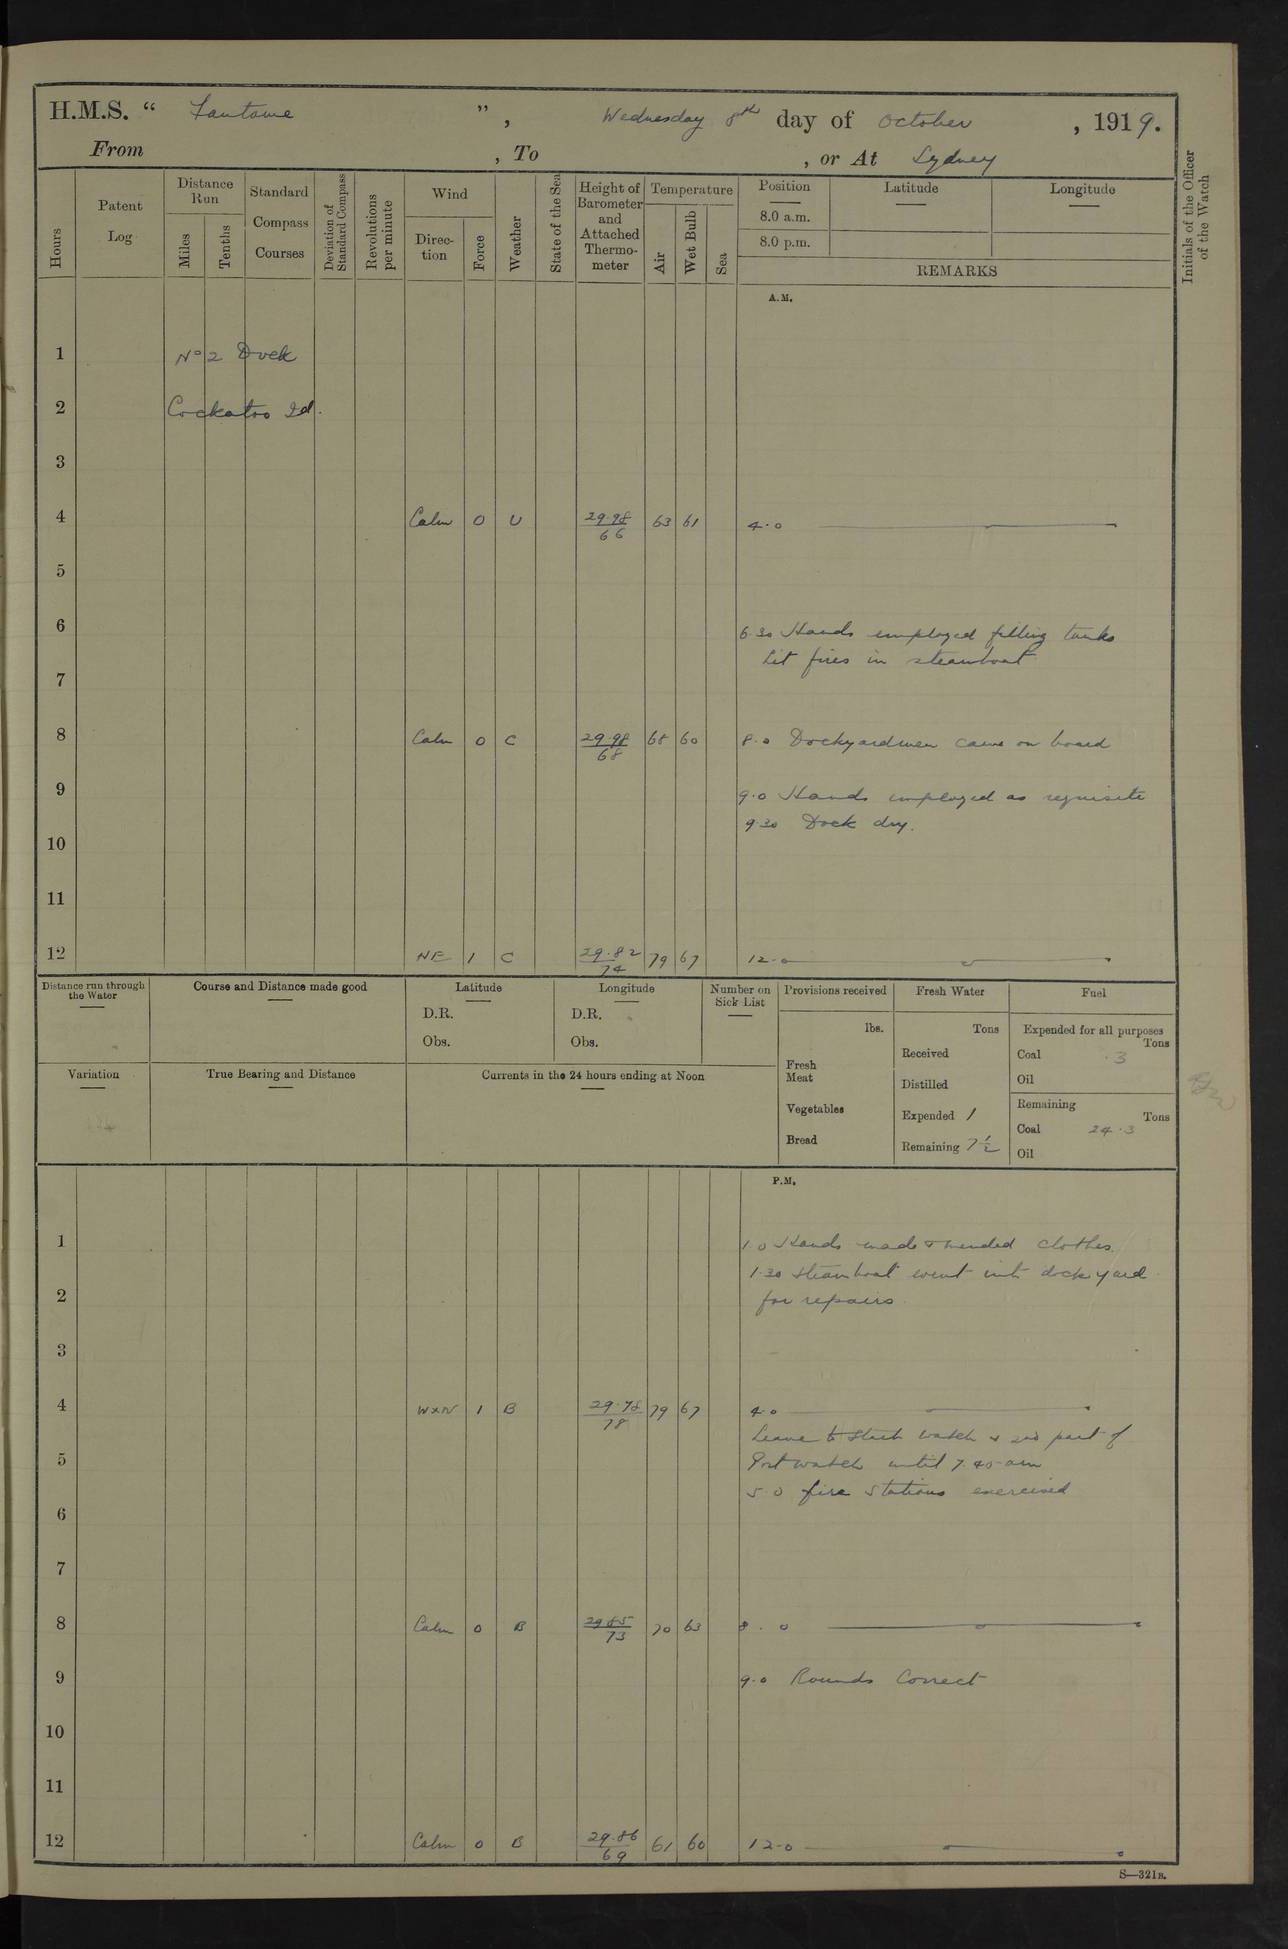 H.M.S. " Fantome ", Wednesday 8th day of October, 1919.
From , To , or At Sydney
Hours
Patent Log
Distance Run
Miles
Tenths
Standard Compass Courses
Deviation of Standard Compass
Revolutions per minute
Wind
Direction
Force
Weather
State of the Sea
Height of Barometer and Attached Thermometer
Temperature
Air
Wet Bulb
Sea
Position
8.0 a.m.
8.0 p.m.
Latitude
Longitude
REMARKS
Initials of the Officer of the Watch
A.M.
1 No 2 Dock
2 Cockatoo Id.
3
4 Calm 0 U 29.98/66 63 61 4.0
5
6
6.30 Hands employed filling tanks
Lit fires in steamboat
7
8 Calm 0 C 29.98/68 68 60 8.0 Dockyardmen came on board
9 9.0 Hands employed as requisite
9.30 Dock dry.
10
11
12 NE 1 C 29.82/74 79 67 12.0
Distance run through the Water
Course and Distance made good
Latitude
D.R.
Obs.
Longitude
D.R.
Obs.
Number on Sick List
Provisions received
lbs.
Fresh Meat
Vegetables
Bread
Fresh Water
Tons
Received
Distilled
Expended 1
Remaining 7 1/2
Fuel
Expended for all purposes
Tons
Coal .3
Oil
Remaining
Tons
Coal 24.3
Oil
Variation
True Bearing and Distance
Currents in the 24 hours ending at Noon
P.M.
1 1.0 Hands made & mended clothes.
1.30 Steamboat went into dockyard
2 for repairs
3
4 WxN 1 B 29.78/78 79 67 4.0
Leave to Starb watch & 2nd part of
5 Port watch until 7.40 am
5.0 fire stations exercised
6
7
8 Calm 0 B 29.85/73 70 63 8.0
9 9.0 Rounds Correct
10
11
12 Calm 0 B 29.86/69 61 60 12.0
S—321B.